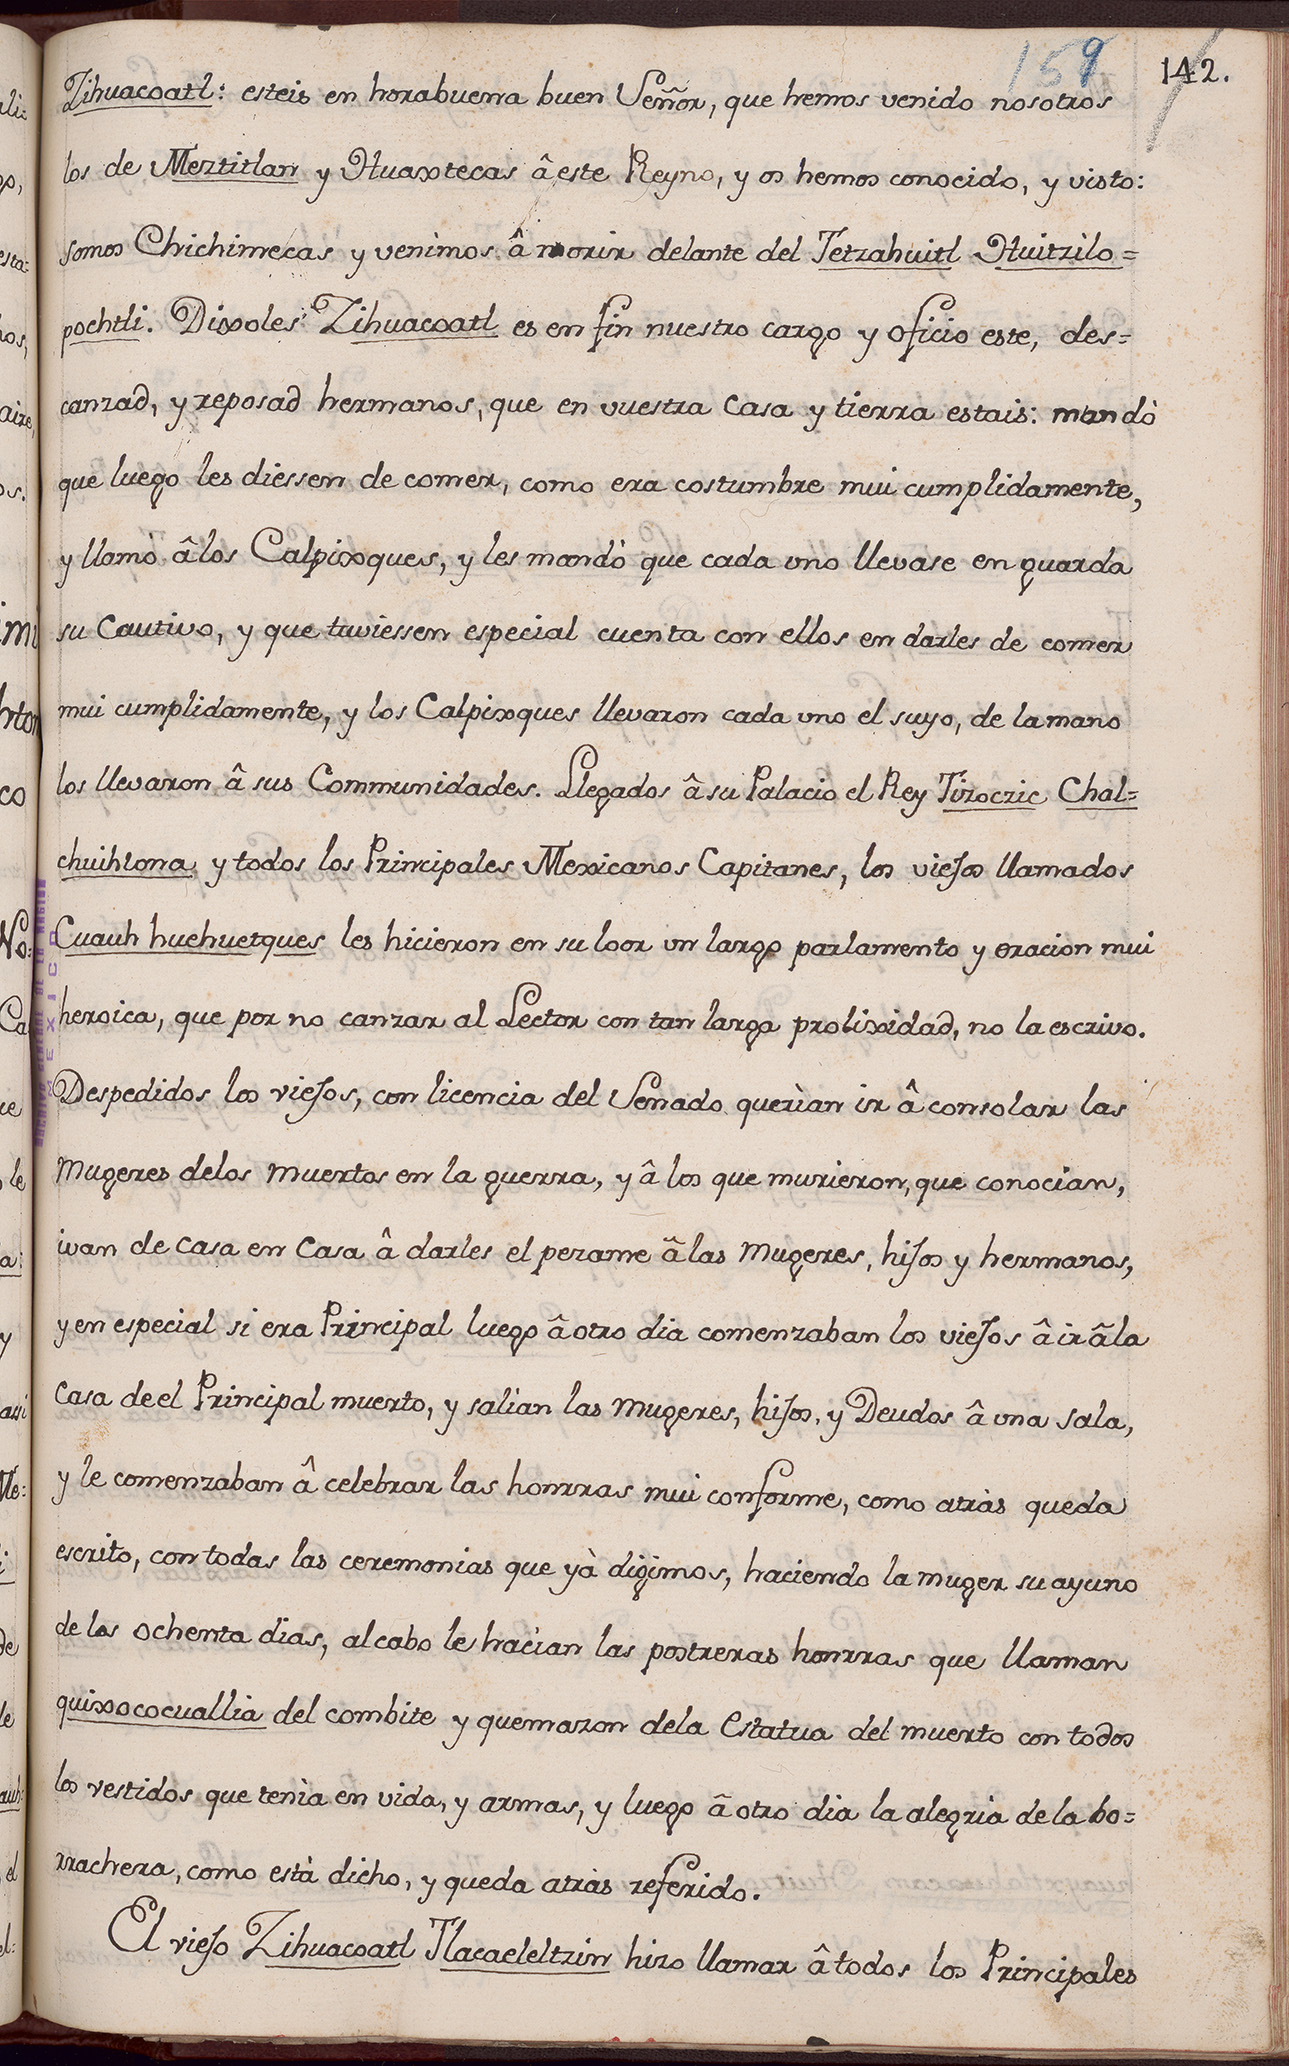 159 142.
Zihuacoatl: esteis en horabuena buen Señor, que hemos venido nosotros
los de Meztitlan y Huaxtecas â este Reyno, y os hemos conocido, y visto:
somos Chichimecas y venimos â morir delante del Tetzahuitl Huitzilo=
pochtli. Dixoles Zihuacoatl es en fin nuestro cargo y oficio este, des=
canzad, y reposad hermanos, que en vuestra casa y tierra estais: mandò
que luego les diessen de comer, como era costumbre mui cumplidamente,
y llamò âlos Calpixques, y les mandò que cada uno llevase en guarda
su Cautivo, y que tuviessen especial cuenta con ellos en darles de comer
mui cumplidamente, y los Calpixques llevaron cada uno el suyo, de la mano
los llevaron â sus Communidades. Llegados â su Palacio el Rey Tizoczic Chal=
chiuhtona y todos los Principales Mexicanos Capitanes, los viejos llamados
Cuauh huehuetques les hicieron en su loor un largo parlamento y oracion mui
heroica, que por no canzar al Lector con tan larga prolixidad, no la escrivo.
Despedidos los viejos, con licencia del Senado querìan ir â consolar las
mugeres delos muertos en la guerra, y â los que murieron, que conocian,
ivan de casa en casa â darles el pezame âlas mugeres, hijos y hermanos,
y en especial si era Principal luego â otro dia comenzaban los viejos â ir âla
casa de el Principal muerto, y salian las mugeres, hijos, y Deudos â una sala,
y le comenzaban â celebrar las honrras mui conforme, como atràs queda
escrito, con todas las ceremonias que yà digimos, haciendo la muger su ayuno
de los ochenta dias, al cabo le hacìan las postreras honrras que llaman
quixococuallia del combite y quemazon dela estatua del muerto con todos
los vestidos que tenìa en vida, y armas, y luego â otro dia la alegria de la bo=
rrachera, como està dicho, y queda atràs referido.
El viejo Zihuacoatl Tlacaeleltzin hizo llamar â todos los Principales